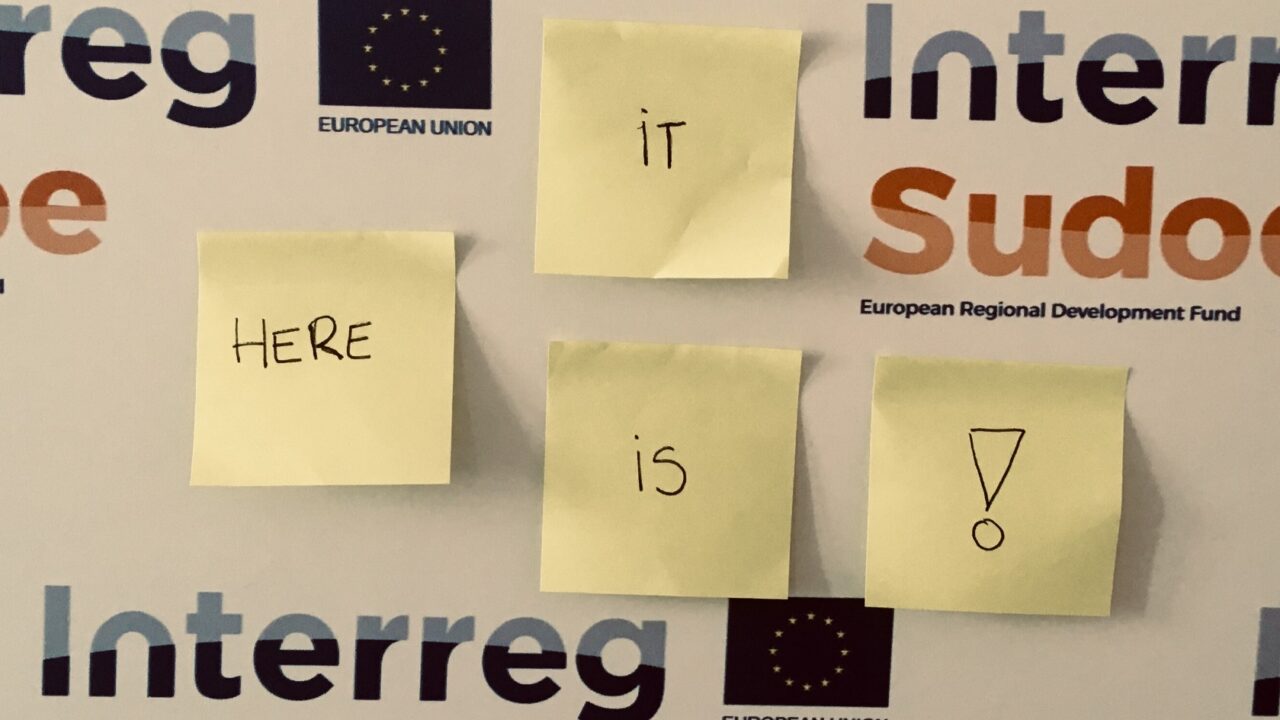 Interreg
EUROPEAN UNION
iT
Interr
Sudoe
European Regional Development Fund
HERE
iS
!
Interreg
EUROPEAN UNION